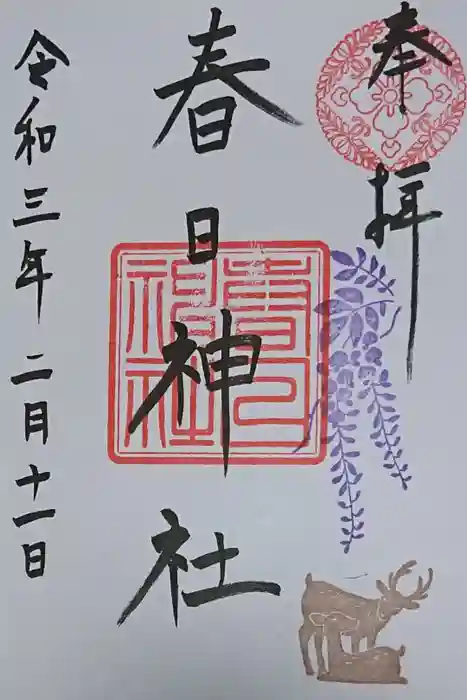 奉拝
春日神社
春日
神社
令和三年二月十一日